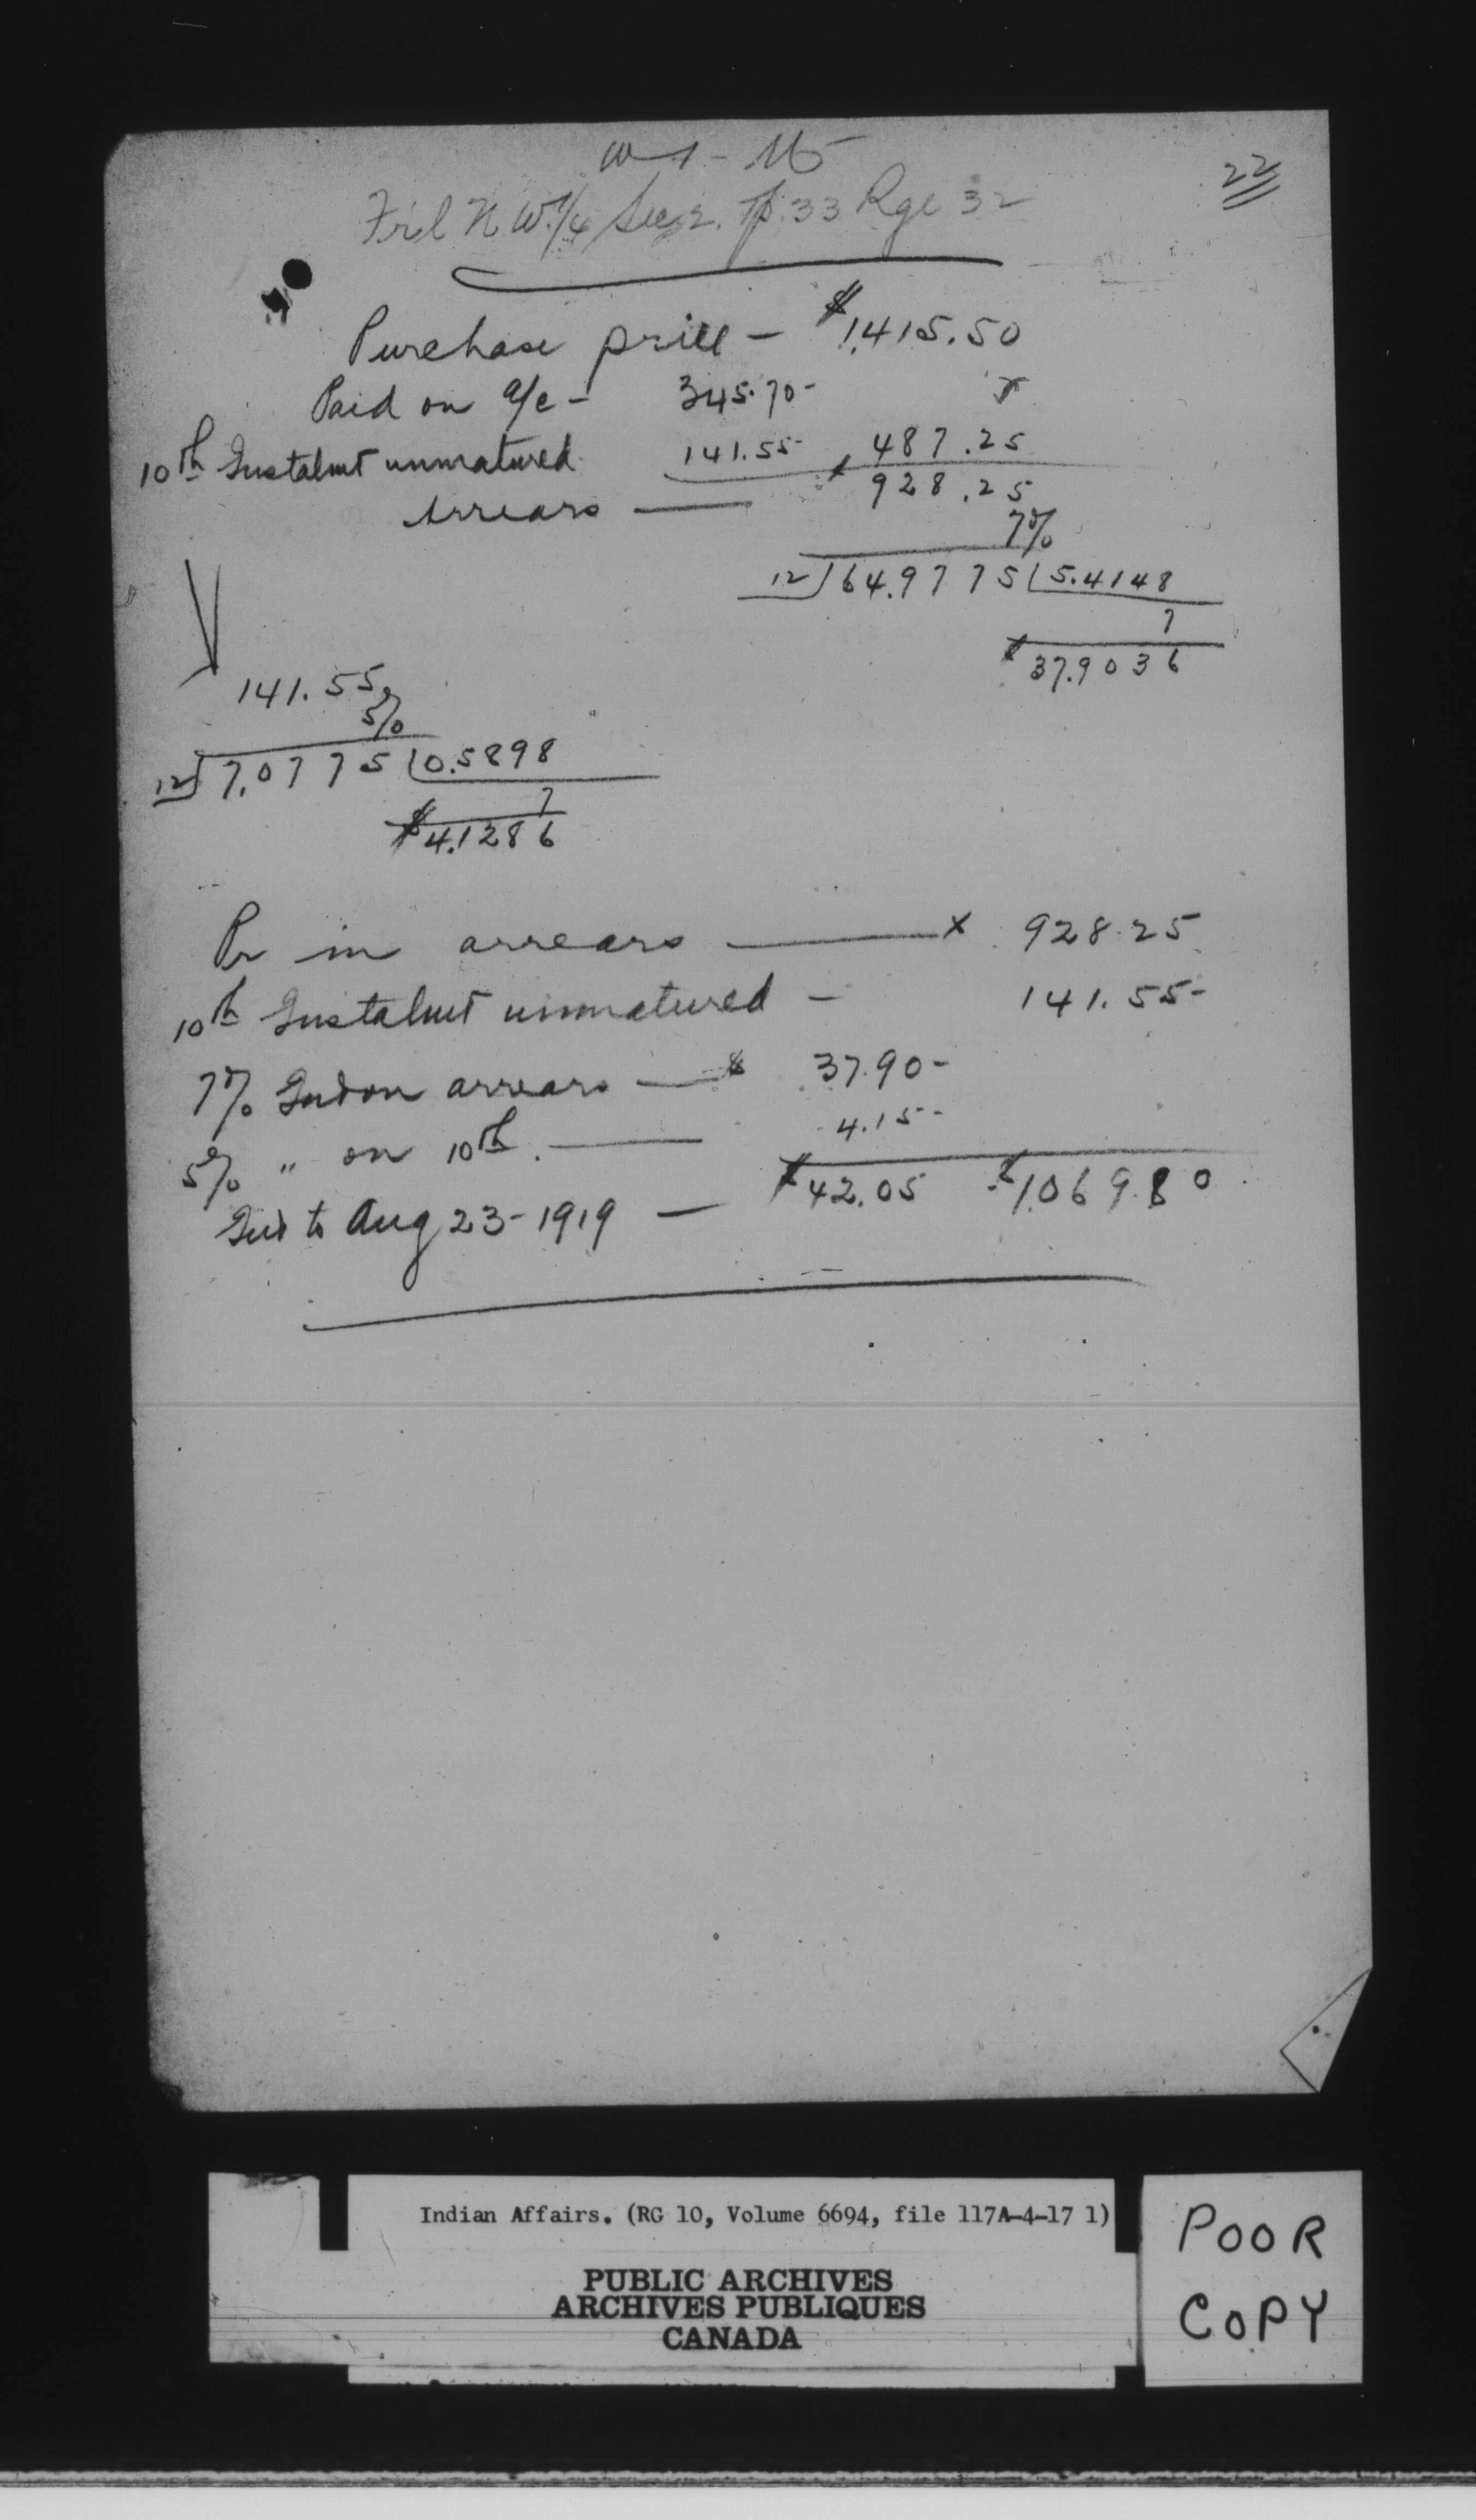 22
Fr'l N W 1/4 Sec 2. Tp. 33 Rge 32
Purchase price - $1,415.50
Paid on a/c - 345.70-
10th Instalmt unmatured 141.55- 487.25
Arrears — 928.25
7%
12 64.9775 5.4148
7
$37.9036
141.55
5%
12 7.0775 0.5898
7
$4.1286
Pr in arrears — 928.25
10th Instalmt unmatured - 141.55-
7% Int on arrears — $ 37.90-
5% " on 10th. — 4.15-
Int to Aug 23-1919 — $42.05 $1,069.80
Indian Affairs. (RG 10, Volume 6694, file 117A-4-17 1)
PUBLIC ARCHIVES
ARCHIVES PUBLIQUES
CANADA
POOR
COPY